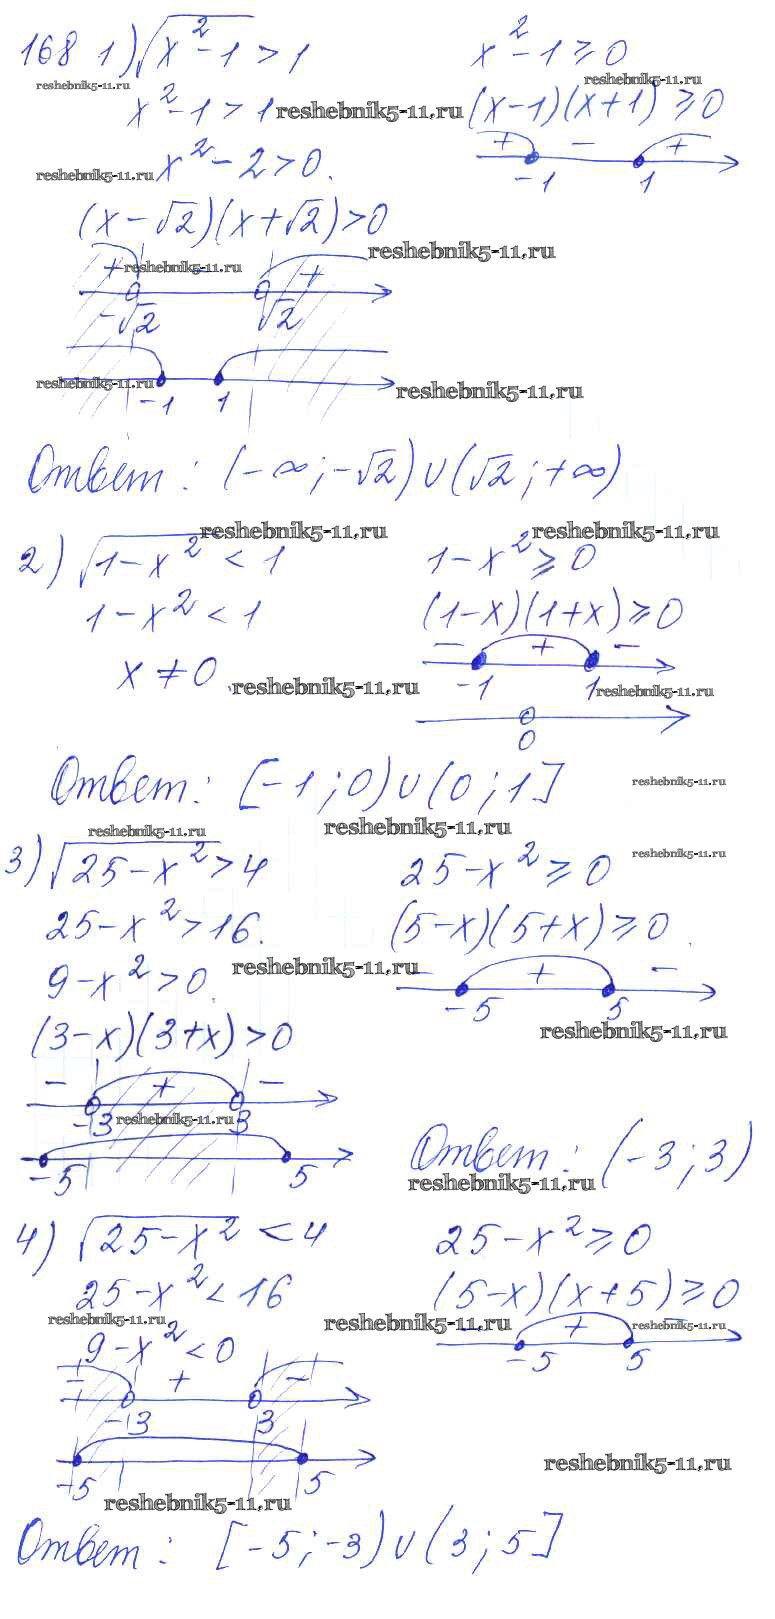 168 1) √(x²-1) > 1    x²-1 ≥ 0
reshebnik5-11.ru    reshebnik5-11.ru
x²-1 > 1    reshebnik5-11.ru    (x-1)(x+1) ≥ 0
+ - +
reshebnik5-11.ru    x²-2 > 0.    -1    1
(x-√2)(x+√2) > 0
reshebnik5-11.ru
+ reshebnik5-11.ru - +
-√2    √2
reshebnik5-11.ru    reshebnik5-11.ru
-1    1
Ответ: (-∞; -√2) ∪ (√2; +∞)
reshebnik5-11.ru    reshebnik5-11.ru
2) √(1-x²) < 1    1-x² ≥ 0
1-x² < 1    (1-x)(1+x) ≥ 0
- + -
x ≠ 0    reshebnik5-11.ru    -1    1    reshebnik5-11.ru
0
Ответ: [-1; 0) ∪ (0; 1]    reshebnik5-11.ru
reshebnik5-11.ru    reshebnik5-11.ru
3) √(25-x²) > 4    25-x² ≥ 0    reshebnik5-11.ru
25-x² > 16.    (5-x)(5+x) ≥ 0
9-x² > 0    reshebnik5-11.ru    - + -
-5    5
(3-x)(3+x) > 0    reshebnik5-11.ru
- + -
-3    reshebnik5-11.ru    3
-5    5    Ответ: (-3; 3)
reshebnik5-11.ru
4) √(25-x²) < 4    25-x² ≥ 0
25-x² < 16    (5-x)(x+5) ≥ 0
reshebnik5-11.ru    reshebnik5-11.ru    - + -    reshebnik5-11.ru
9-x² < 0    -5    5
- + -
-3    3
-5    5    reshebnik5-11.ru
reshebnik5-11.ru
Ответ: [-5; -3) ∪ (3; 5]